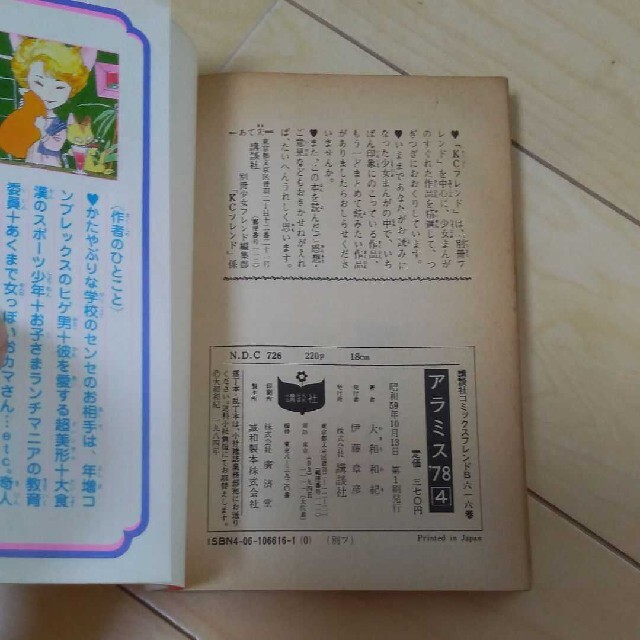 ♥「KCフレンド」は、別冊フ
レンド」を中心に、少女まんが
のすぐれた作品を精選して、つ
ぎつぎにおおくりしています。
♥いままであなたがお読みに
なった少女まんがの中で、いち
ばん印象にのこっている作品、
もう一どまとめて読みたい作品
がありましたらおしらせくださ
いませんか。
♥また、この本を読んだご感想・
ご意見などもおきかせねがえれ
ばたいへんうれしく思います。
講談社
別冊少女フレンド編集部
「KCフレンド」係
〈作者のひとこと〉
♥かたやぶりな学校のセンセのお相手は、年増コ
ンプレックスのヒゲ男+彼を愛する超美形+大食
漢のスポーツ少年+お子さまランチマニアの教育
委員+あくまで女っぽいオカマさん…etc.奇人
N.D.C 726 220p 18cm
講談社コミックスフレンドB 八一六巻
アラミス'78 4
定価 三七〇円
昭和59年10月13日 第1刷発行
著者 大和和紀
発行者 伊藤章彦
発行所 株式会社 講談社
講談社
印刷所 株式会社 廣済堂
製本所 誠和製本株式会社
©大和和紀 一九八四年
ISBN4-06-106616-1 (0) (別フ)
Printed in Japan